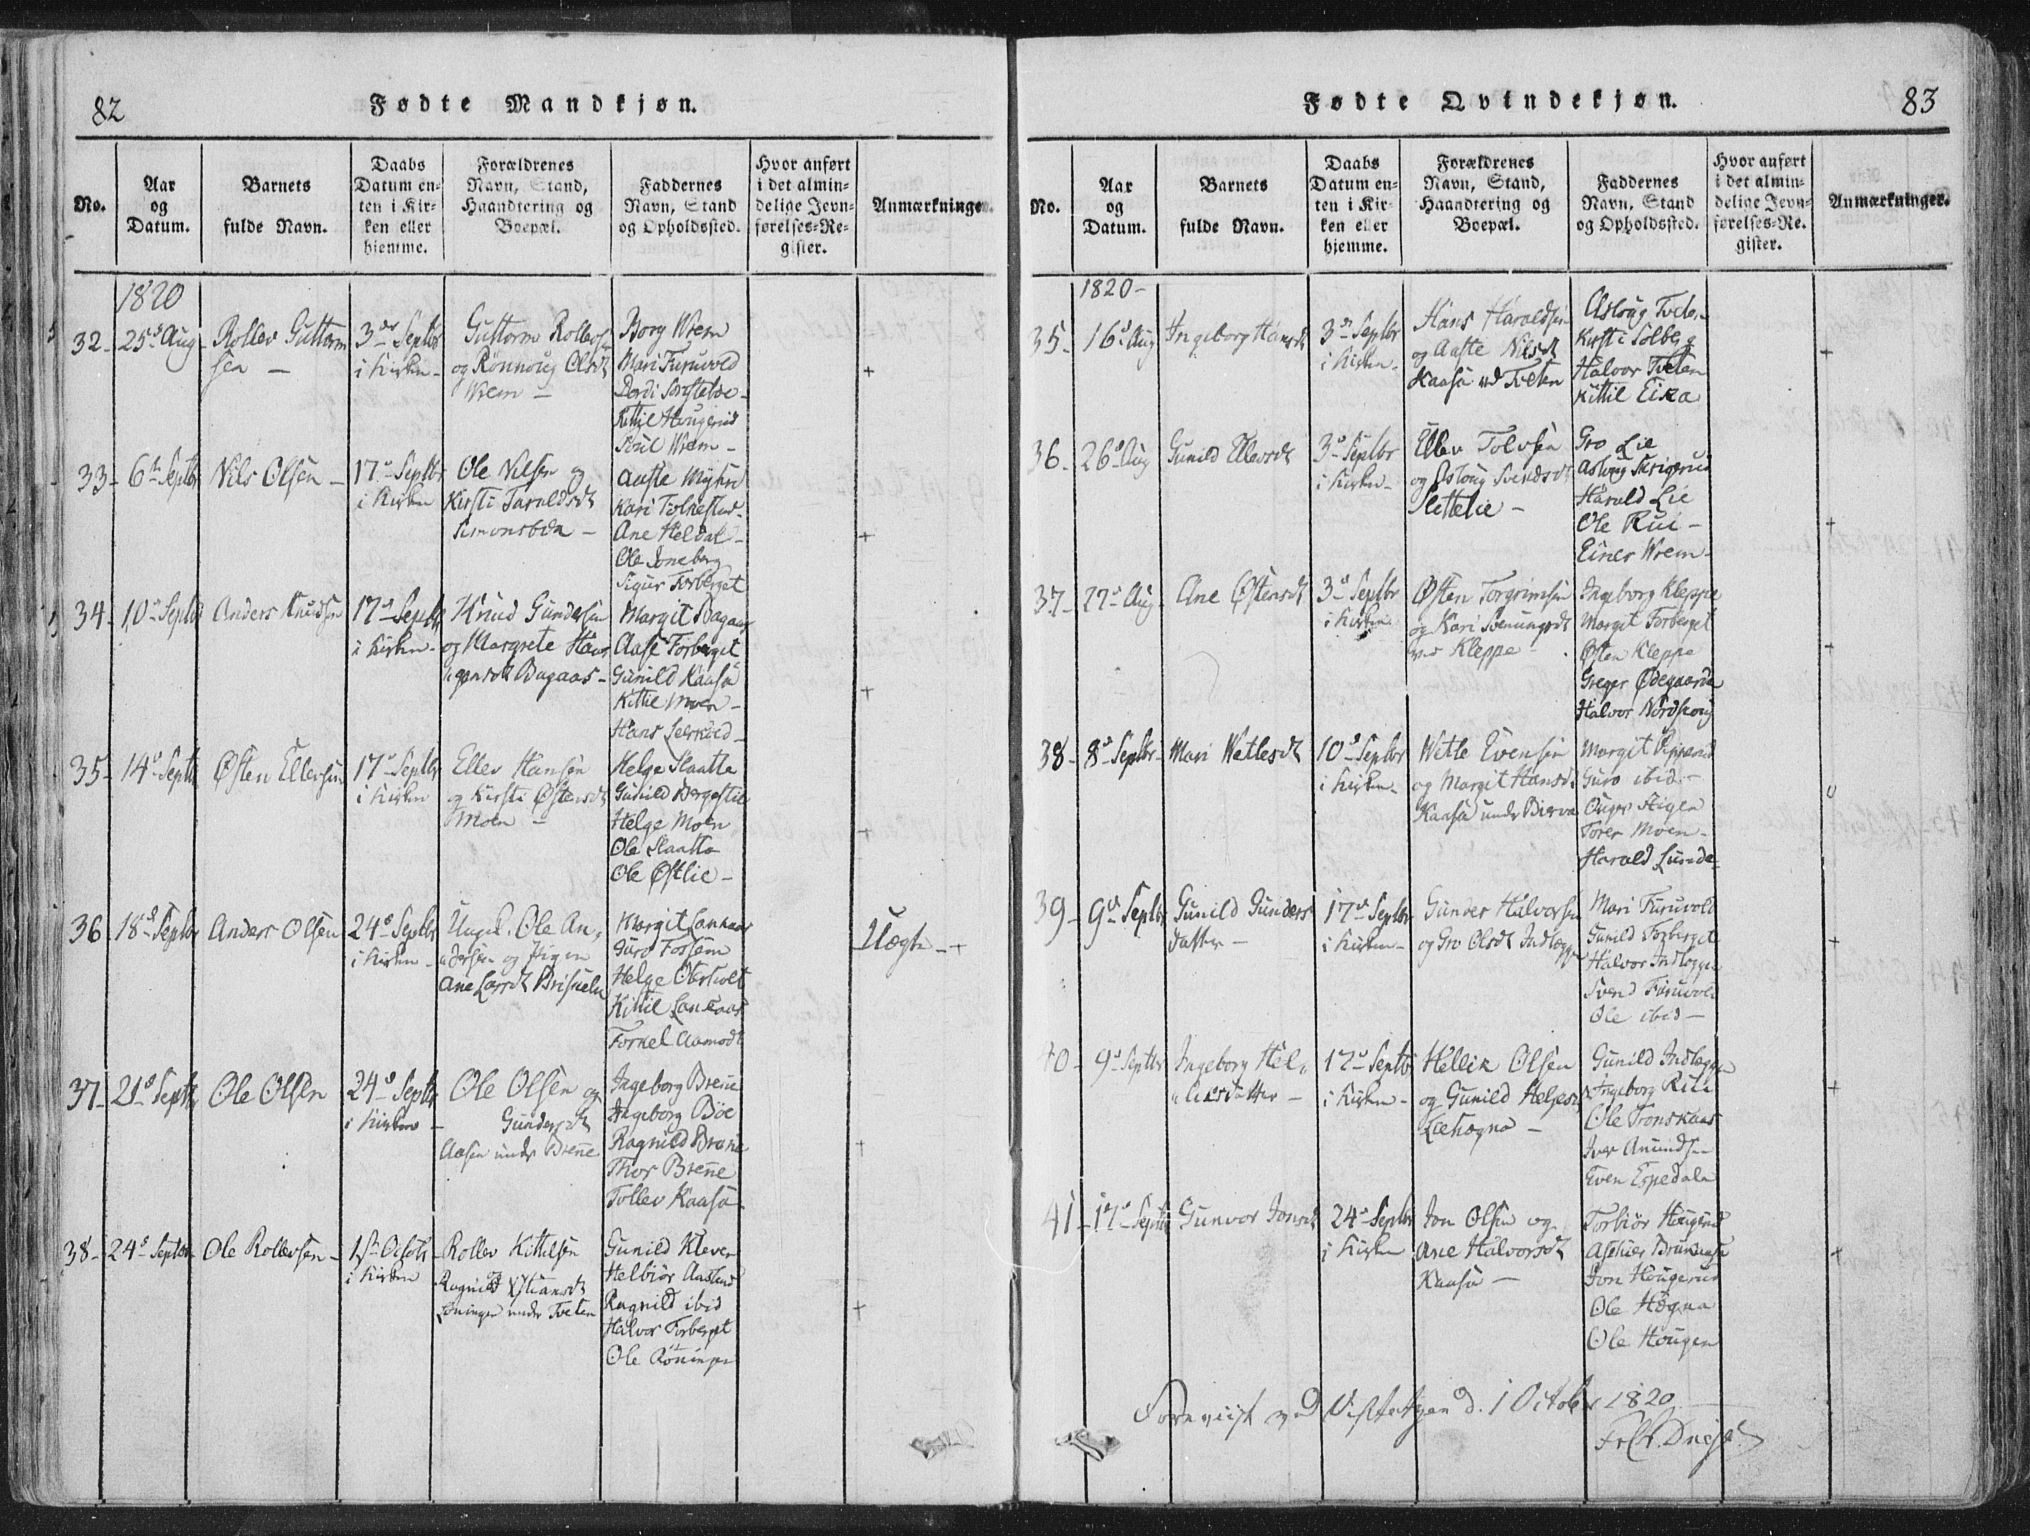 82
Fødte Mandkjøn.
No.
Aar
og
Datum.
Barnets
fulde Navn.
Daabs
Datum en-
ten i Kir-
ken eller
hjemme.
Forældrenes
Navn, Stand,
Haandtering og
Boepæl.
Faddernes
Navn, Stand
og Opholdssted.
Hvor anført
i det almin-
delige Jevn-
førelses-Re-
gister.
Anmærkninge
1820
32-
25d Aug
Rollev Guttorm
sen -
3die Septbr
i Kirken-
Guttorm Rollevs
og Rønnoug Olsdt
Wrem -
Borg Wrem
Mari Furuvold
Kittil Hougerud
Poul Wrem -
+
33-
6te Septbr
Nils Olsen -
17d Septbr
i Kirken
Ole Nilsen og
Kirsti
Simonsbra -
Aaste Myhre
Kari Folkestad-
Ane Heldal-
Ole Joneberg
Sigur Forberget
+
34-
10d Septbr
Anders Knudsen
17d Septbr
i Kirken-
Knud Gundersen
og Margrete Hans
Bagaas-
Margit Bagaas
Aase Forberget
Gunild Kaasa
Kittil Moen-
Hans
+
35-
14d Septbr
Østen Ellevsen
17d Septbr
i Kirken
Ellev Hansen
og Kirsti Østensdt
Moen -
Helge Slaatta
Gunild Bergestie
Helge Moen
Ole Slaatta
Ole Østlie-
+
36
18d Septbr
Anders Olsen
24d Septbr
i Kirken-
Ungk. Ole An,
"dersen og Pigen
Ane Larsdt
Margit Lonaas
Guro Fossem
Helge Obrholt
Kittil Lonaas
Torkel Aamodt
Uægte-+
37-
21d Septbr
Ole Olsen
24d Septbr
i Kirken-
Ole Olsen og
Gundersdt
Aasen under Brenne
Ingeborg Brenne
Ingeborg Bøe
Ragnild Brenne
Thor Brenne
Tollev Kaasa
+
38-
24d Septbr
Ole Rollevsen-
1ste Octobr
i Kirken
Rollev Kittilsen
Ragnild Xstiansdt
Løningen under Tveten
Gunild Klever
Helbiør Aaslund
Ragnild ibid
Halvor Forberget
Ole Røningen
+
83
Fødte Qvindekjøn.
No.
Aar
og
Datum.
Barnets
fulde Navn.
Daabs
Datum en-
ten i Kir-
ken eller
hjemme.
Forældrenes
Navn, Stand,
Haandtering og
Boepæl.
Faddernes
Navn, Stand
og Opholdssted.
Hvor anført
i det almin-
delige Jevn-
førelses-Re-
gister.
Anmærkninger.
1820-
35-
16d Aug
Ingeborg Hansdt
3die Septbr
i Kirken-
Hans Haraldsen
og Aaste Nilsdt
Kaasa ved Tveten
Asloug Tvete,
Kirsti Solberg
Halvor Tveten
Kittil Eika
+
36-
26d Aug
Gunild Ellevsdt
3d Septbr
i Kirken-
Ellev Tolvsen
og Asloug Svendsdt
Slettelie -
Gro Lie
Asloug Skrigerud
Harald Lie
Ole Rui -
Einer Wrem-
+
37-
27d Aug
Ane Østensdt
3d Septbr
i Kirken
Østen Torgrimsen
og Kari Svenungsdt
ved Kleppe-
Ingeborg Kleppe
Margit Forberget
Østen Kleppe
Greger Ødegaarden
Halvor Nordskoug
+
38-
8d Septbr-
Mari Wetlesdt
10d Septbr
i Kirken-
Wetle Evensen
og Margit Hansdt
Kaasa under Bierva
Margit
Guro ibid-
Torer Moen-
Harald Lunde-
39-
9d Septbr
Gunild Gunders
datter -
17d Septbr
i Kirken-
Gunder Halvorsen
og Gro Olsdt Indlægge
Mari Furuvold
Gunild Forberget
Halvor Indlæggen
Svend Furuvold
Ole ibid -
+
40-
9d Septbr
Ingeborg Hel,
"liksdatter -
17d Septbr
i Kirken-
Hellik Olsen
og Gunild Helgesdt
Liehogna -
Gunild Indlæggen
Ingeborg Rui
Ole Tronskaas
Iver Anundsen
Even Espedala
+
41-
17d Septbr
Gunvor Jonsdt
24d Septbr
i Kirken
Jon Olsen og
Ane Halvorsdt
Kaasa -
Torbiør Hougerud
Jon Hougerud
Ole Høgna
Ole Hougen
+
Foreviist ved Visitatzen d. 1 October 1820